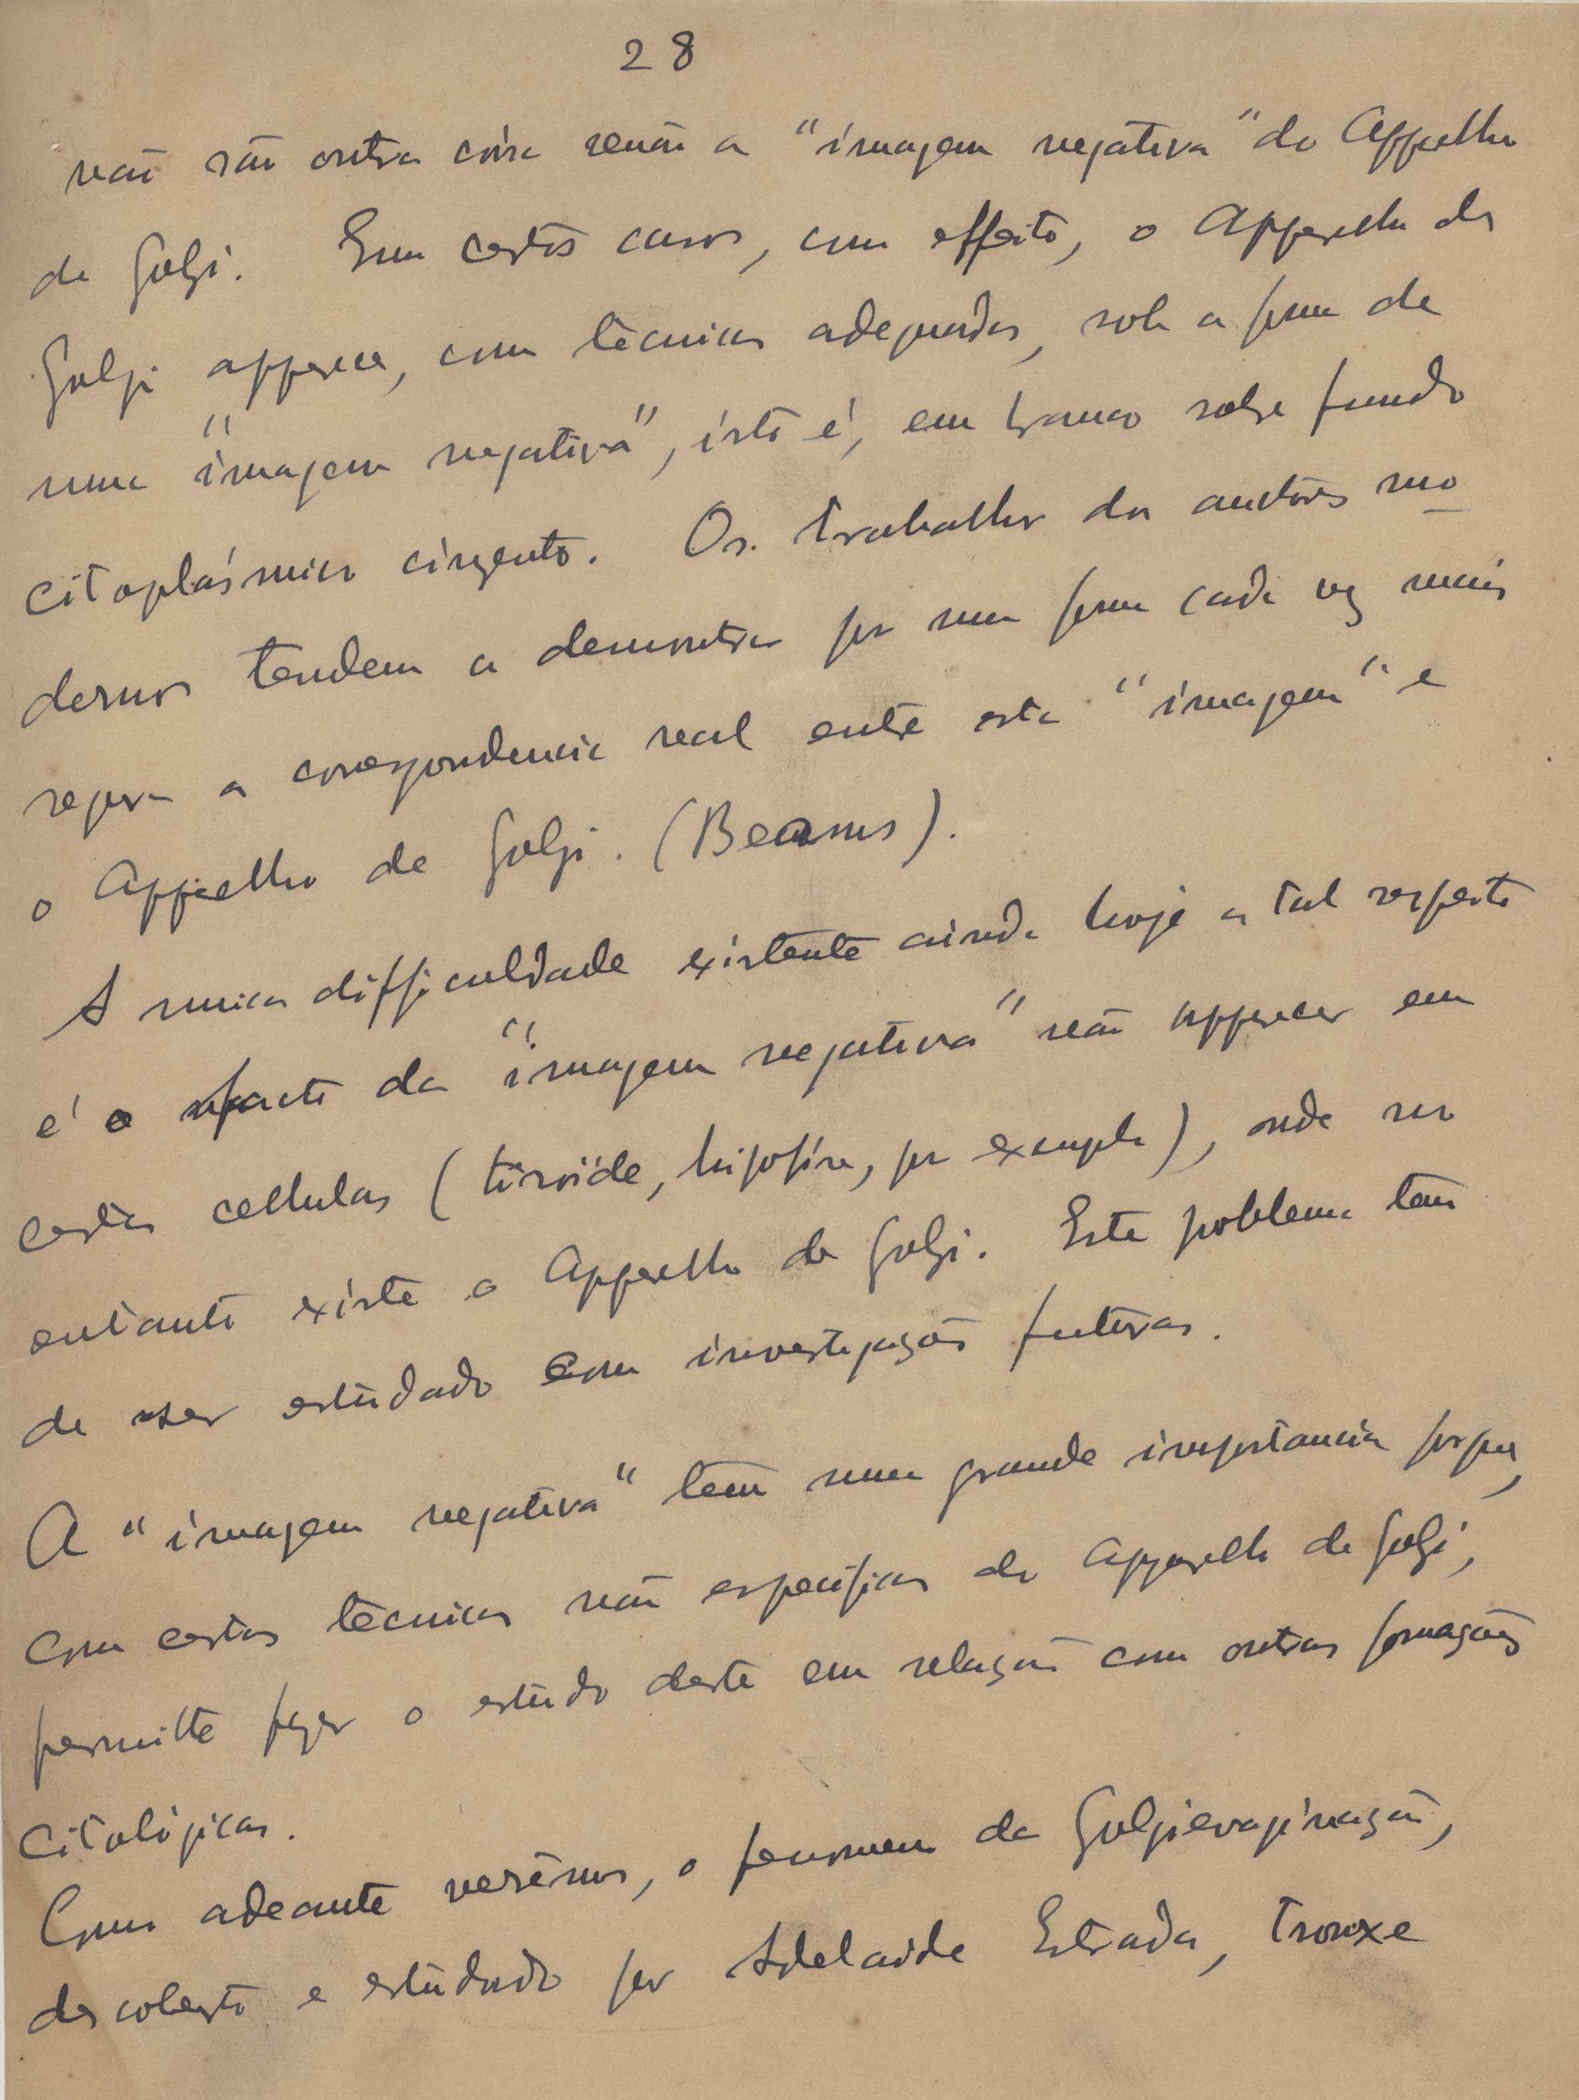 28
não são outra coisa senão a "imagem negativa" do Apparelho
de Golgi. Em certos casos, com effeito, o Apparelho de
Golgi apparece, com técnicas adequadas, sob a forma de
uma "imagem negativa", isto é, em branco sobre fundo
citoplásmico cinzento. Os trabalhos dos autores mo
dernos tendem a demonstrar por uma forma cada vez mais
segura a correspondencia real entre esta "imagem" e
o Apparelho de Golgi. (Beams).
A unica difficuldade existente ainda hoje a tal respeito
é o facto da "imagem negativa" não apparecer em
certas cellulas (tiroide, hipofise, por exemplo), onde no
entanto existe o Apparelho de Golgi. Este problema tem
de ser estudado com investigações futuras.
A "imagem negativa" tem uma grande importancia porque,
com certas técnicas não especificas do Apparelho de Golgi,
permitte fazer o estudo deste em relação com outras formações
citológicas.
Como adeante verêmos, o fenomeno da Golgievaginação,
descoberto e estudado por Adelaide Estrada, trouxe